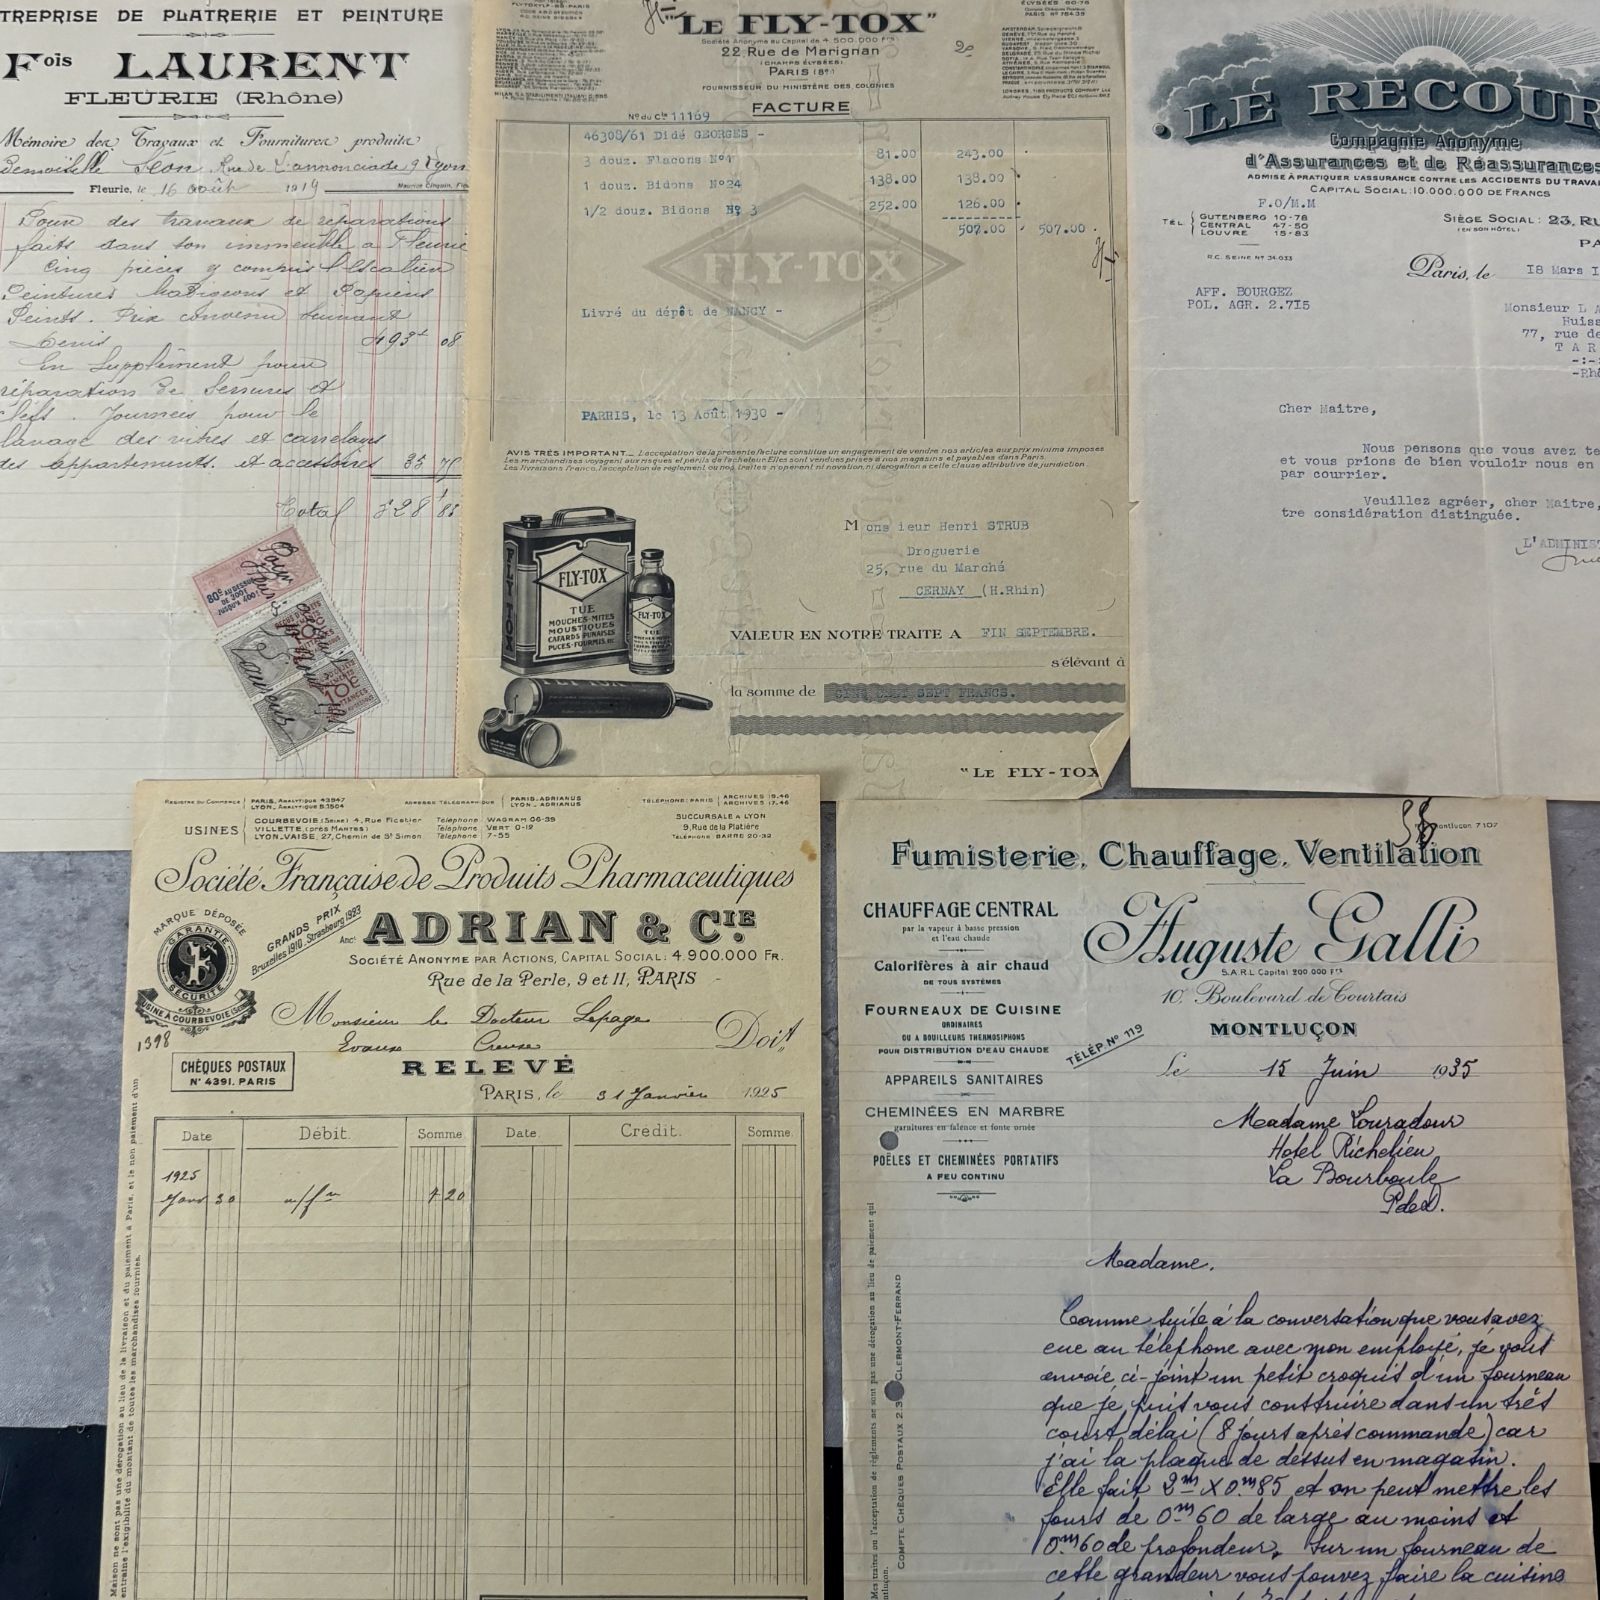 TREPRISE DE PLATRERIE ET PEINTURE
Fois LAURENT
FLEURIE (Rhône)
Mémoire des Travaux et Fournitures produits
demoiselle Rue de L'annonciade 9 Lyon
Fleurie, le 16 août 1919
Pour des travaux de réparations
faits dans son immeuble a Fleurie
Cinq pièces y compris l'escalier
Peintures Badigeons et Papiers
Peints. Prix convenu suivant
Devis 493 08
En Supplément pour
réparation de Serrures et
clefs. Journées pour le
lavage des vitres et carrelages
des appartements. et accessoires 35 75
Total 528 83
80c AU DESSUS
DE 200F
JUSQU'A 400F
"LE FLY-TOX"
Société Anonyme au Capital de 4.500.000 Frs
22 Rue de Marignan
(CHAMPS ÉLYSÉES)
PARIS (8e)
FOURNISSEUR DU MINISTÈRE DES COLONIES
FACTURE
No du Cte 11169
46308/61 Didé GEORGES -
3 douz. Flacons No1 81.00 243.00
1 douz. Bidons No24 138.00 138.00
1/2 douz. Bidons No 3 252.00 126.00
507.00 507.00
FLY-TOX
Livré du dépôt de NANCY -
PARHIS, le 13 Août 1930 -
AVIS TRÈS IMPORTANT._ L'acceptation de la présente facture constitue un engagement de vendre nos articles aux prix minima imposés
Les marchandises voyagent aux risques et périls de l'acheteur. Elles sont vendues prises à nos magasins et payables dans Paris.
Les livraisons franco, l'acceptation de règlement ou nos traites n'opèrent ni novation, ni dérogation a cette clause attributive de juridiction.
FLY-TOX
TUE
MOUCHES-MITES
MOUSTIQUES
CAFARDS PUNAISES
PUCES-FOURMIS, etc
FLY-TOX
TUE
Monsieur Henri STRUB
Droguerie
25, rue du Marché
CERNAY (H.Rhin)
VALEUR EN NOTRE TRAITE A FIN SEPTEMBRE.
s'élévant à
la somme de CINQ CENT SEPT FRANCS.
"LE FLY-TOX
LE RECOUR
Compagnie Anonyme
d'Assurances et de Réassurances
ADMISE À PRATIQUER L'ASSURANCE CONTRE LES ACCIDENTS DU TRAVA
CAPITAL SOCIAL: 10.000.000 DE FRANCS
F.O/M.M
TÉL. GUTENBERG 10-78
CENTRAL 47-50
LOUVRE 15-83
SIÈGE SOCIAL: 23, RU
(EN SON HÔTEL)
PA
R.C. SEINE No 34.033
Paris, le 18 Mars 1
AFF. BOURGEZ
POL. AGR. 2.715
Monsieur L A
Huiss
77, rue de
T A R
-:-:
-Rhô
Cher Maitre,
Nous pensons que vous avez te
et vous prions de bien vouloir nous en
par courrier.
Veuillez agréer, cher Maitre,
tre considération distinguée.
L'ADMINIST
REGISTRE DU COMMERCE PARIS, ANALYTIQUE 43947
LYON, ANALYTIQUE B.1504
ADRESSE TÉLÉGRAPHIQUE PARIS-ADRIANUS
LYON-ADRIANUS
TÉLÉPHONE: PARIS ARCHIVES 15.46
ARCHIVES 17.46
USINES
COURBEVOIE (SEINE) 4, Rue Ficatier Téléphone WAGRAM 06-39
VILLETTE, (PRÈS MANTES) Téléphone VERT 0-12
LYON-VAISE, 27, Chemin de St Simon Téléphone 7-55
SUCCURSALE A LYON
9, Rue de la Platière
TÉLÉPHONE: BARRE 20-32
Société Française de Produits Pharmaceutiques
MARQUE DÉPOSÉE
GARANTIE
SÉCURITÉ
USINE À COURBEVOIE (SEINE)
GRANDS PRIX
Bruxelles 1910. Strasbourg 1923
Anct ADRIAN & CIE
SOCIÉTÉ ANONYME PAR ACTIONS, CAPITAL SOCIAL: 4.900.000 FR.
Rue de la Perle, 9 et 11, PARIS
Monsieur le Docteur Lepage
Evaux Creuse Doit
1398
RELEVÉ
CHÈQUES POSTAUX
No 4391. PARIS
PARIS, le 31 Janvier 1925
Date Débit. Somme. Date. Crédit. Somme.
1925
Janv 30 n/fre 7 20
Maison ne sont pas une dérogation au lieu de la livraison et du paiement à Paris, et le non paiement d'un
entraîne l'exigibilité du montant de toutes les marchandises fournies.
Montluçon 7107
Fumisterie, Chauffage, Ventilation
CHAUFFAGE CENTRAL
par la vapeur à basse pression
et l'eau chaude
Calorifères à air chaud
DE TOUS SYSTÈMES
FOURNEAUX DE CUISINE
ORDINAIRES
OU A BOUILLEURS THERMOSIPHONS
POUR DISTRIBUTION D'EAU CHAUDE
APPAREILS SANITAIRES
CHEMINÉES EN MARBRE
garnitures en faïence et fonte ornée
POÊLES ET CHEMINÉES PORTATIFS
A FEU CONTINU
Auguste Galli
S.A.R.L Capital 200 000 Frs
10, Boulevard de Courtais
MONTLUÇON
TÉLÉP No 119
Le 15 Juin 1935
Madame Louradour
Hotel Richelieu
La Bourboule
P de D.
Madame.
Comme suite à la conversation que vous avez
eue au téléphone avec mon employé, je vous
envoie ci-joint un petit croquit d'un fourneau
que je puis vous construire dans un très
court délai (8 jours après commande) car
j'ai la plaque de dessus en magasin.
Elle fait 2m X 0m85 et on peut mettre les
fours de 0m60 de large au moins et
0m60 de profondeur. Sur un fourneau de
cette grandeur vous pouvez faire la cuisine
Mes traites ou l'acceptation de règlements ne sont pas une dérogation au lieu de paiement qui
COMPTE CHÈQUES POSTAUX 2.3 CLERMONT-FERRAND